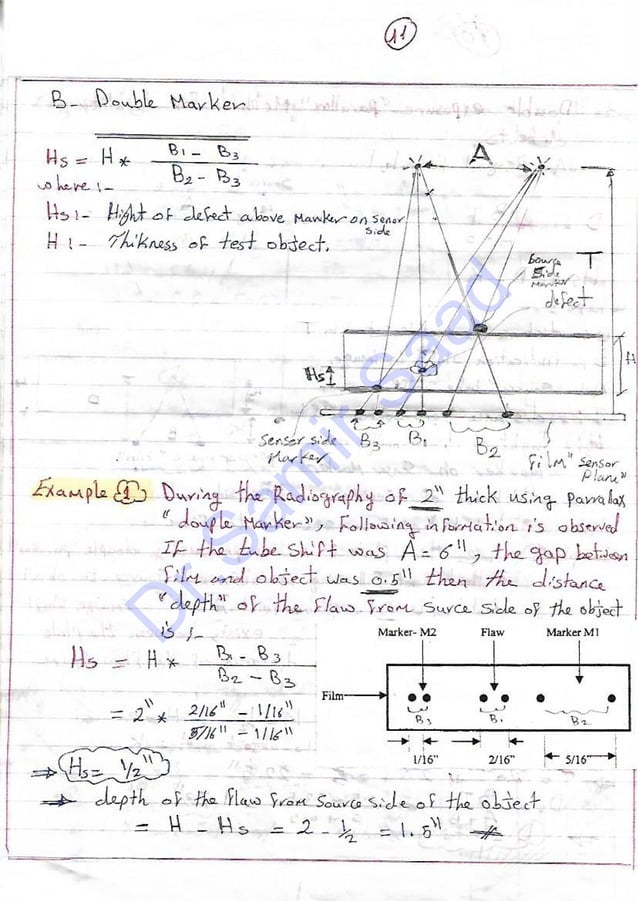 11
B- Double Marker
Hs = H * B1 - B3 / B2 - B3
where :-
Hs :- Hight of defect above Marker on senor side
H :- Thikness of test object.
A
T
Source Side Marker
defect
H
Hs
B3 B1 B2
Sensor side Marker
film "sensor Plane"
Example 1 During the Radiography of 2" thick using parralax
"douple Marker", Following information is observed
If the tube shift was A = 6", the gap between
film and object was 0.5" then the distance
"depth" of the flaw from surce side of the object
is :-
Hs = H * B1 - B3 / B2 - B3
= 2" * 2/16" - 1/16" / 5/16" - 1/16"
Marker- M2 Flaw Marker M1
Film
B3 B1 B2
1/16" 2/16" 5/16"
⇒ Hs = 1/2"
⇒ depth of the flaw from source side of the object
= H - Hs = 2 - 1/2 = 1.5" #
Dr Samir Saad